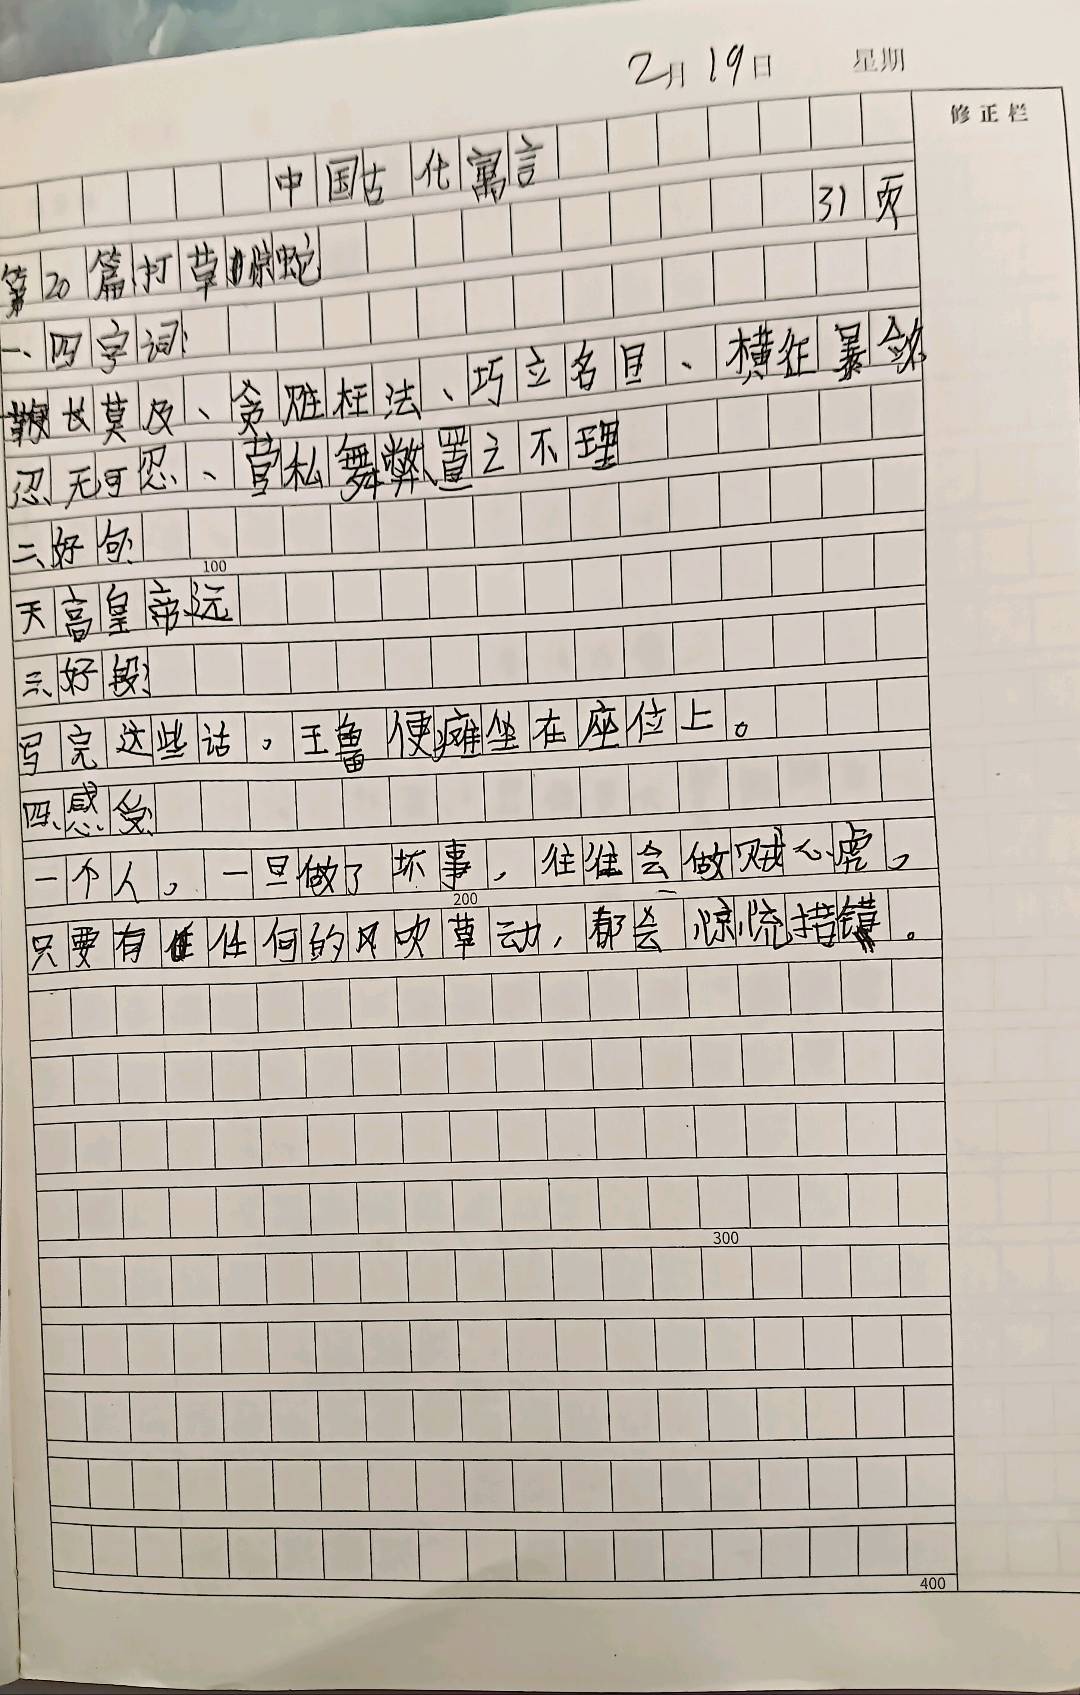 2月19日 星期
修正栏
中国古代寓言
31页
第20篇打草惊蛇
一、四字词:
鞭长莫及、贪赃枉法、巧立名目、横征暴敛
忍无可忍、营私舞弊、置之不理
二、好句:
100
天高皇帝远
三、好段:
写完这些话，王鲁便瘫坐在座位上。
四、感受:
一个人，一旦做了坏事，往往会做贼心虚，
200
只要有任何的风吹草动，都会惊慌措
300
400